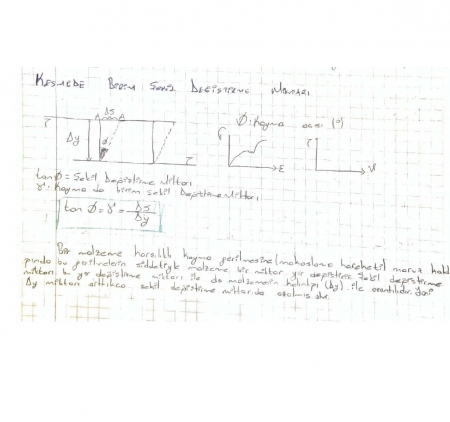 KESMEDE BİRİM ŞEKİL DEĞİŞTİRME MİKTARI
τ A Δs A
Δy φ
τ
φ: Kayma açısı (°)
σ ε
τ γ
tanφ = Şekil Değiştirme Miktarı
γ: Kayma da birim şekil Değiştirme Miktarı
tan φ = γ = Δs/Δy
Bir malzeme karşılıklı kayma gerilmesine maruz
bu gerilmelerin şiddetiyle malzeme bir miktar yer değiştirir. Şekil değiştirme
miktarı bu yer değiştirme miktarı ile de malzemenin kalınlığı (Δy) ile orantılıdır. Yani
Δy miktarı arttıkca şekil değiştirme miktarıda